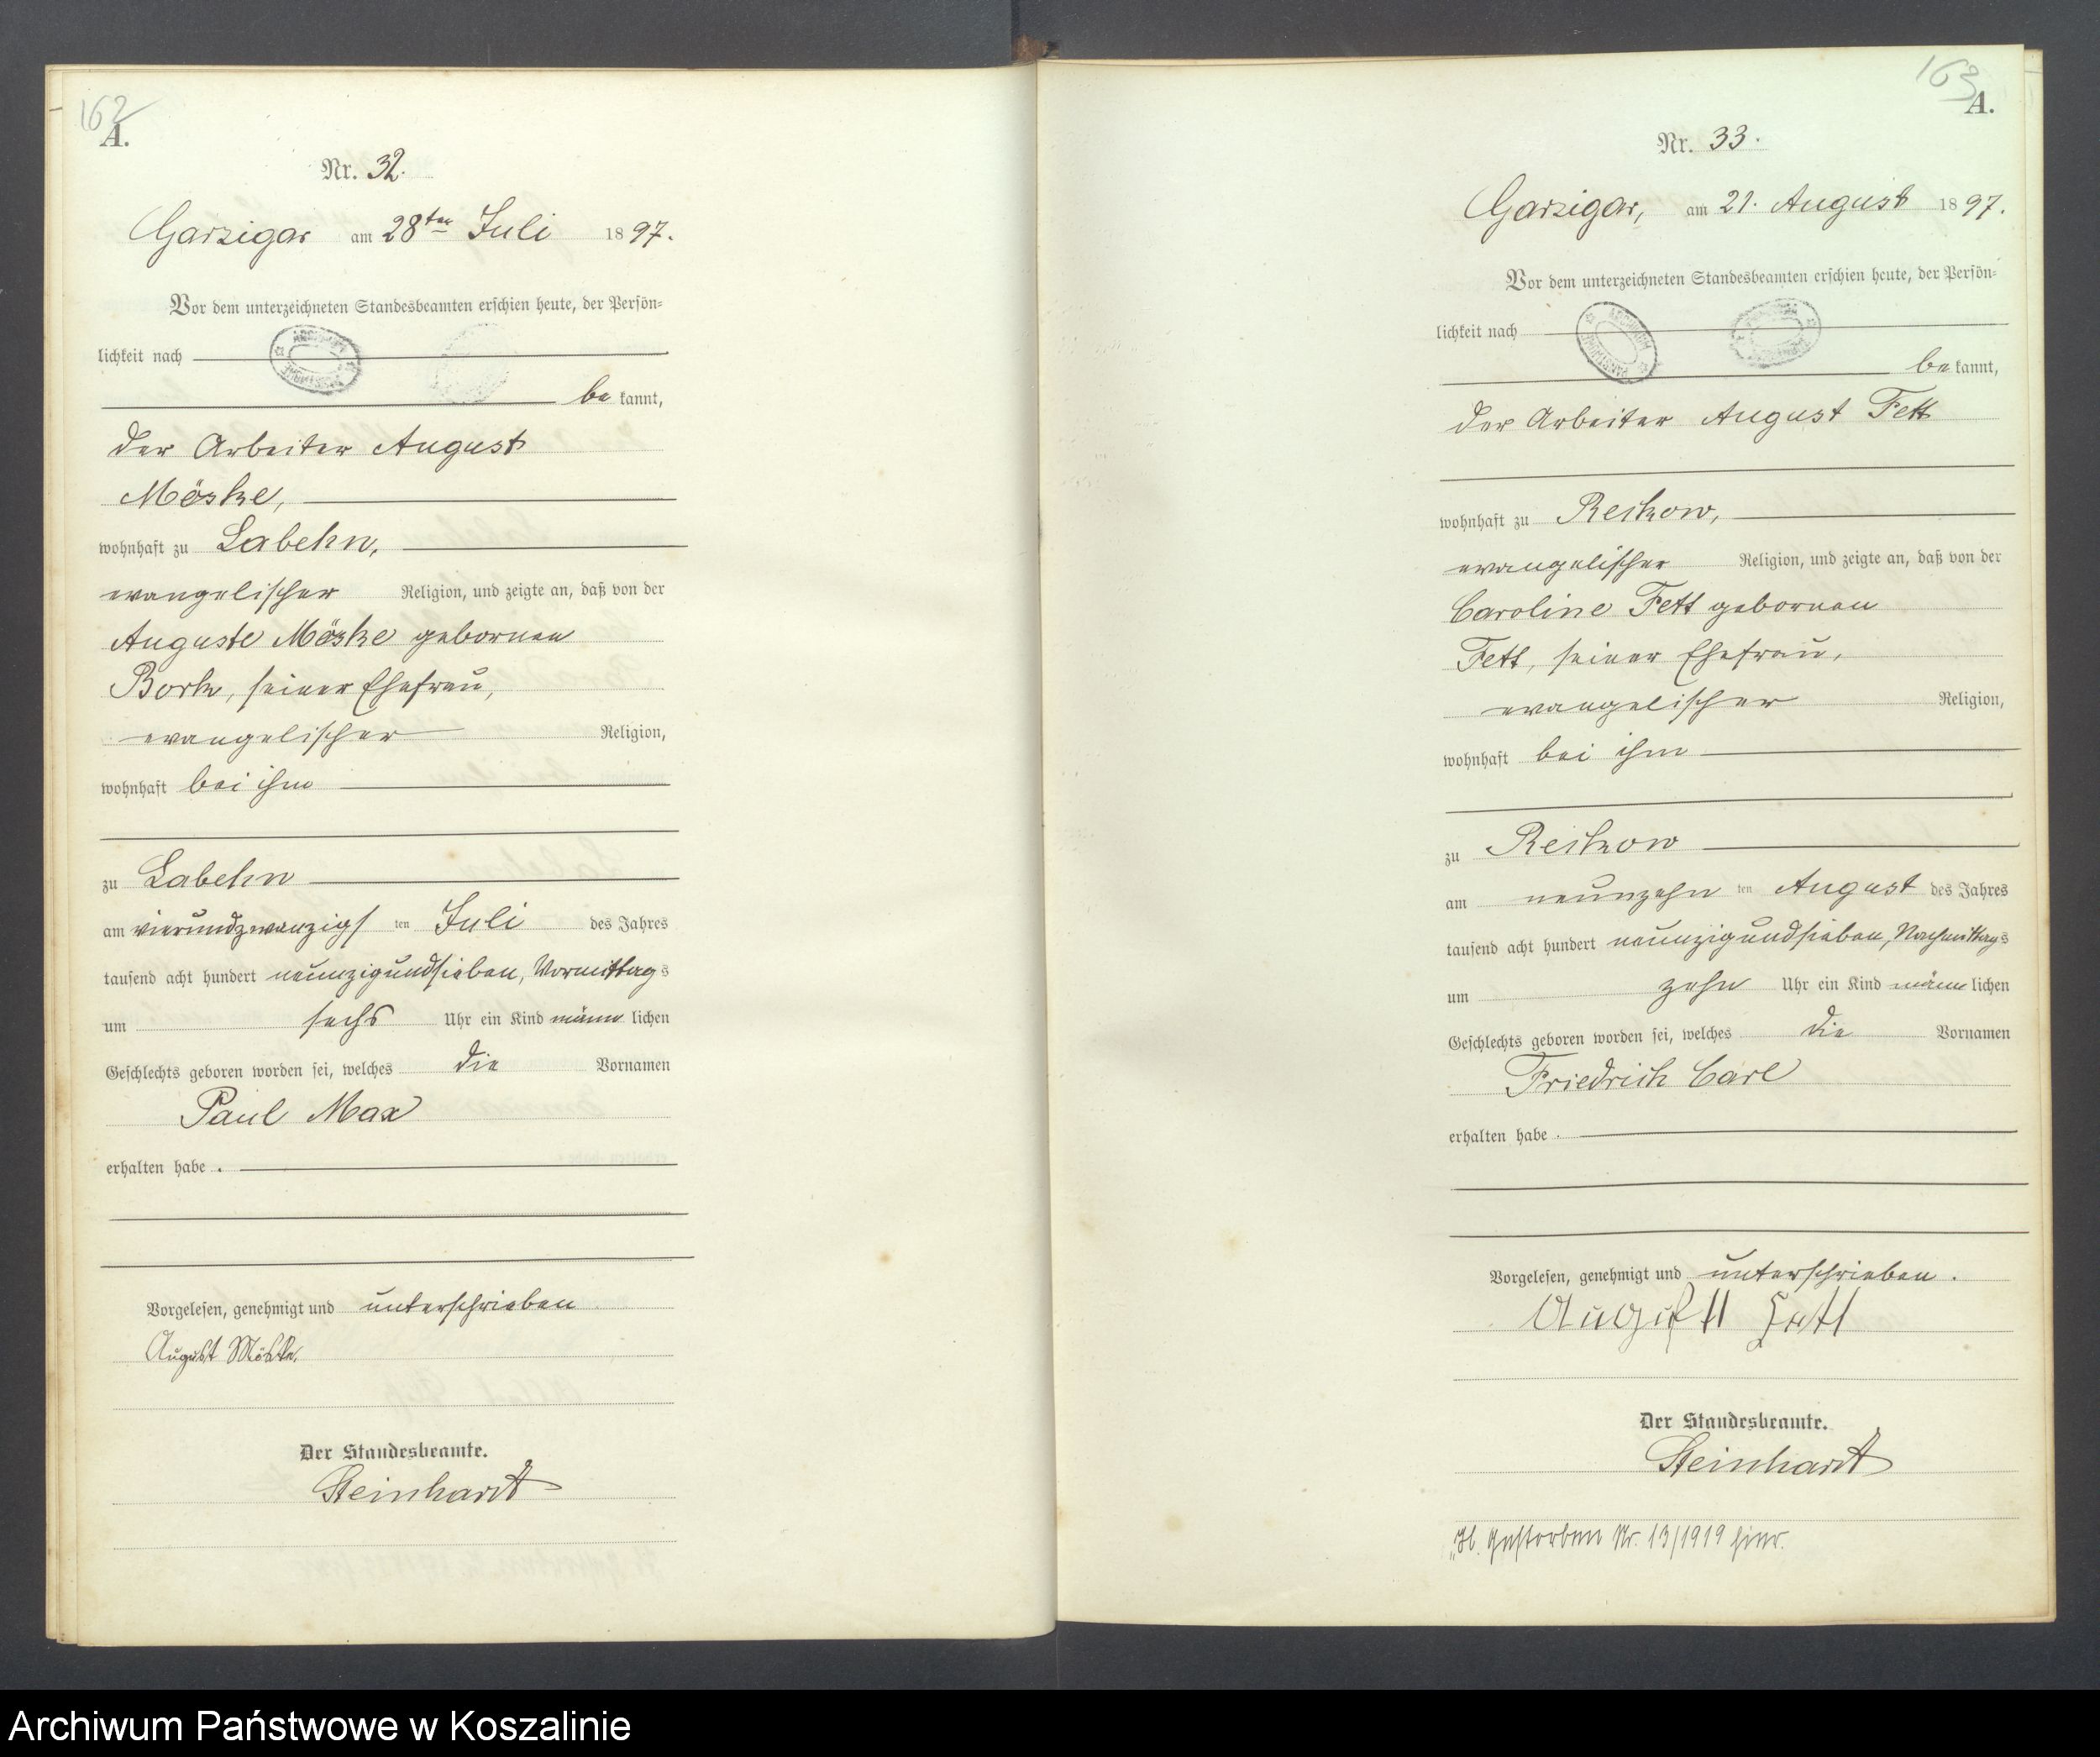 162
A.
Nr. 32.
Garzigar am 28ten Juli 1897.
Vor dem unterzeichneten Standesbeamten erschien heute, der Persön-
lichkeit nach
be kannt,
der Arbeiter August
Möske,
wohnhaft zu Labehn,
evangelischer Religion, und zeigte an, daß von der
Auguste Möske gebornen
Bork, seiner Ehefrau,
evangelischer Religion,
wohnhaft bei ihm
zu Labehn
am vierundzwanzigsten Juli des Jahres
tausend acht hundert neunzigundsieben, Vormittags
um sechs Uhr ein Kind männlichen
Geschlechts geboren worden sei, welches die Vornamen
Paul Max
erhalten habe.
Vorgelesen, genehmigt und unterschrieben
August Möske.
Der Standesbeamte.
Steinhardt
163
A.
Nr. 33.
Garzigar, am 21. August 1897.
Vor dem unterzeichneten Standesbeamten erschien heute, der Persön-
lichkeit nach
be kannt,
der Arbeiter August Fett
wohnhaft zu Reckow,
evangelischer Religion, und zeigte an, daß von der
Caroline Fett gebornen
Fett, seiner Ehefrau,
evangelischer Religion,
wohnhaft bei ihm
zu Reckow
am neunzehnten August des Jahres
tausend acht hundert neunzigundsieben, Nachmittags
um zehn Uhr ein Kind männlichen
Geschlechts geboren worden sei, welches die Vornamen
Friedrich Carl
erhalten habe.
Vorgelesen, genehmigt und unterschrieben.
August Fett
Der Standesbeamte.
Steinhardt
Gestorben Nr. 13/1919 hier.
Archiwum Państwowe w Koszalinie